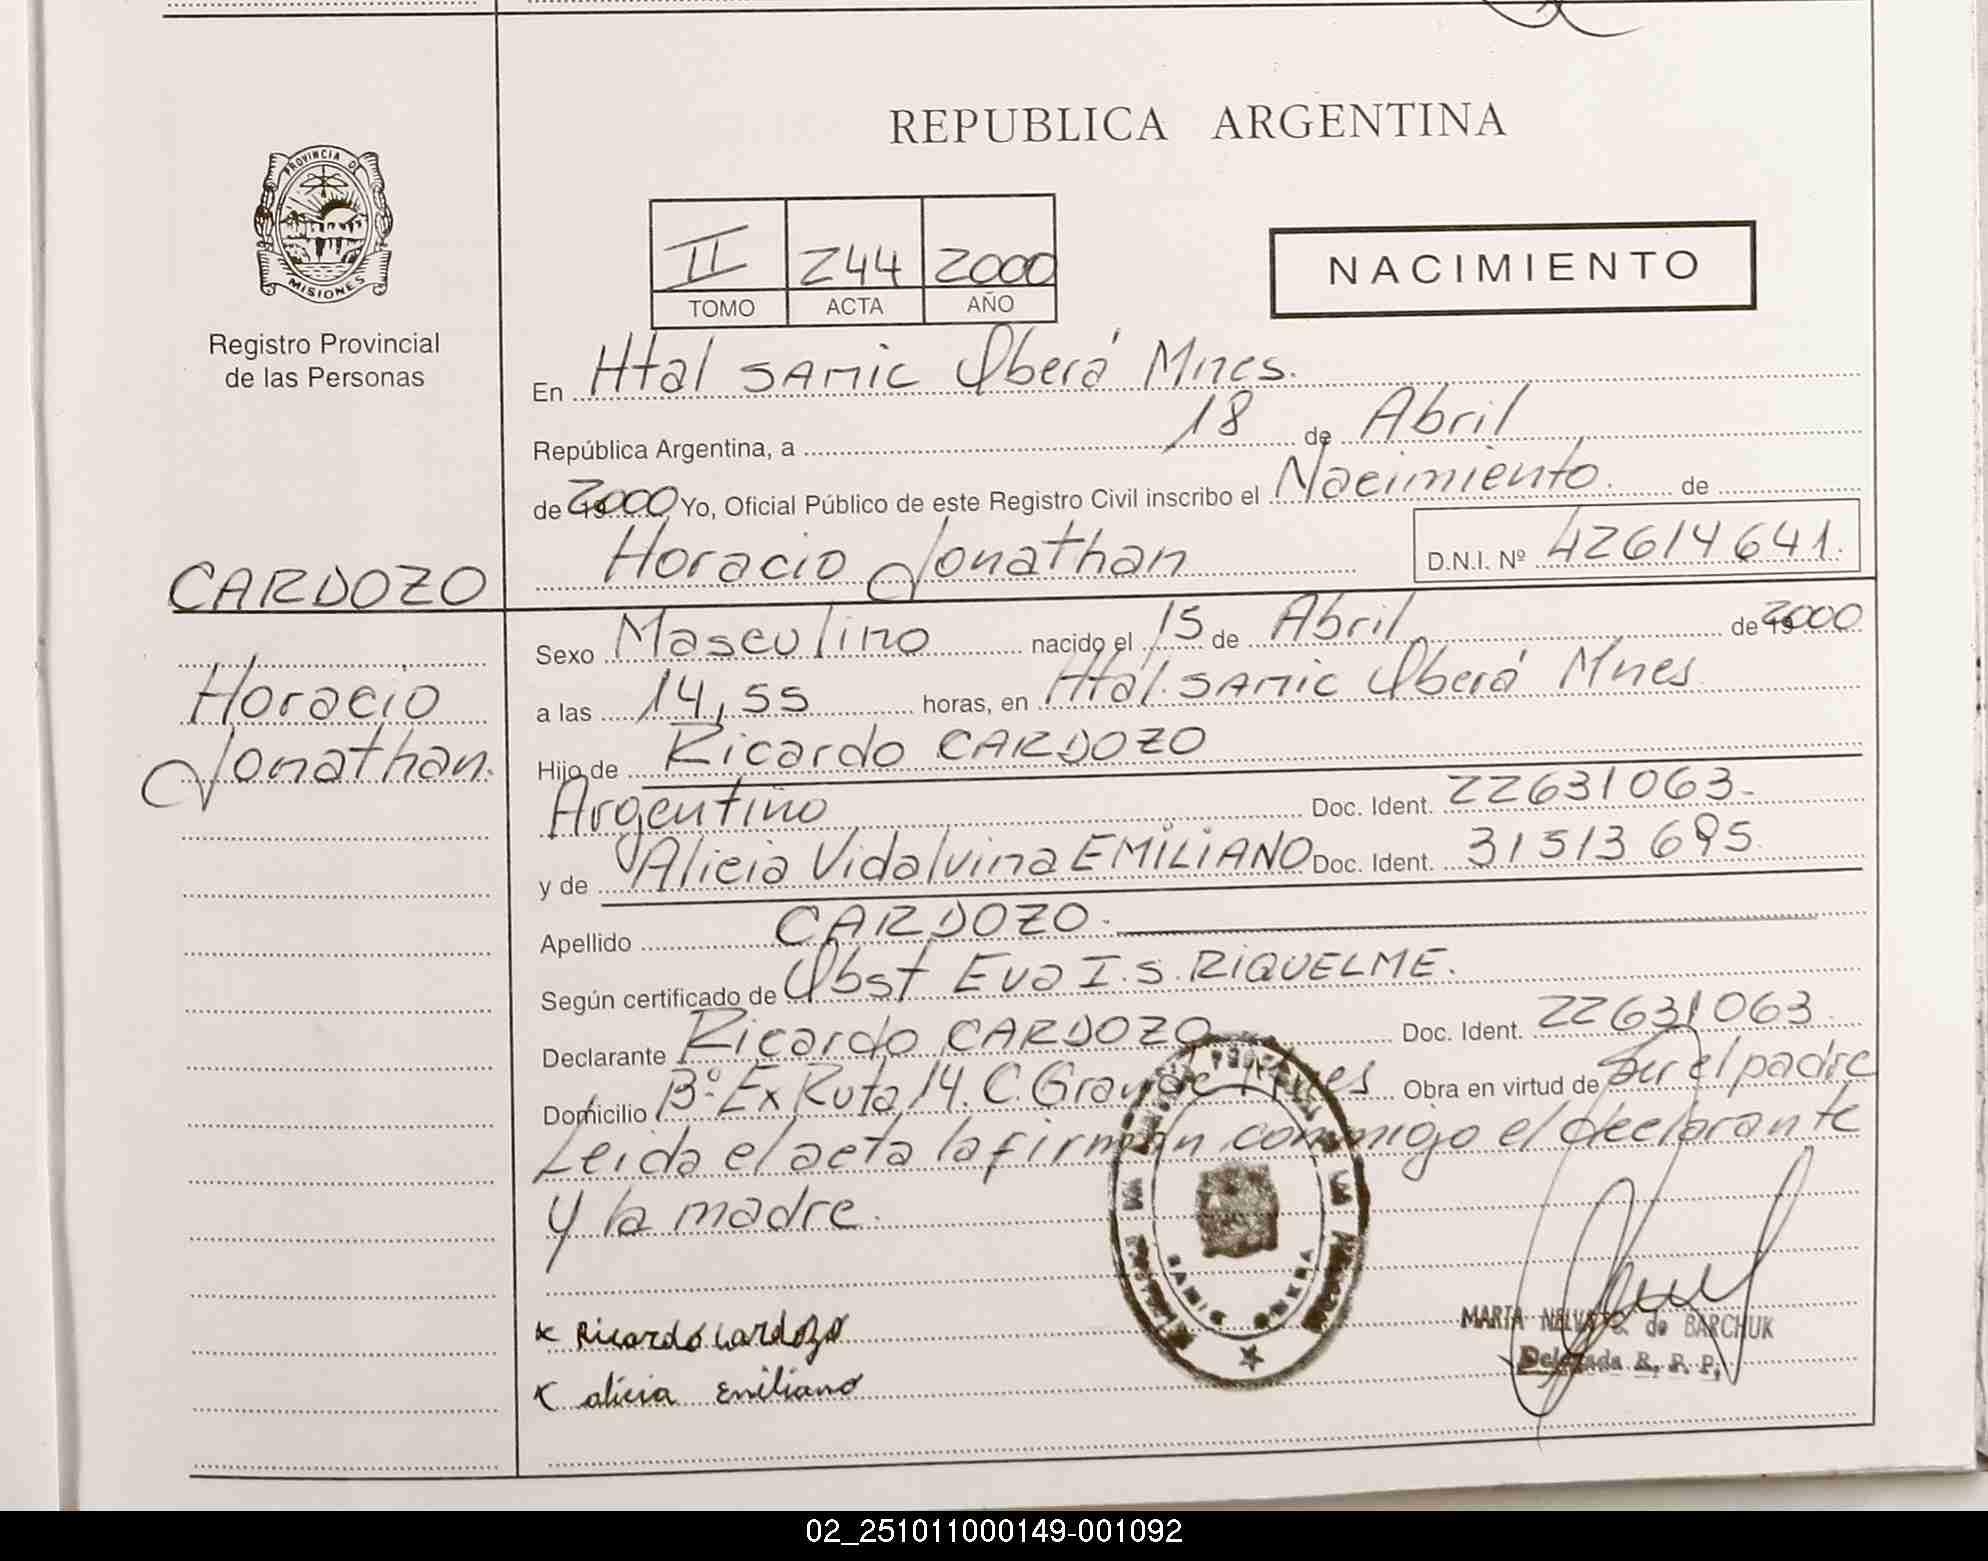 PROVINCIA DE
MISIONES
Registro Provincial
de las Personas
CARDOZO
Horacio
Jonathan.
REPUBLICA ARGENTINA
II 244 2000
TOMO ACTA AÑO
NACIMIENTO
En Htal SAMIC Oberá Mnes.
República Argentina, a 18 de Abril
de 2000 Yo, Oficial Público de este Registro Civil inscribo el Nacimiento. de
Horacio Jonathan D.N.I. Nº 42614641.
Sexo Masculino nacido el 15 de Abril de 2000
a las 14,55 horas, en Htal. SAMIC Oberá Mnes
Hijo de Ricardo CARDOZO
Argentino Doc. Ident. 22631063-
y de Alicia Vidalvina EMILIANO Doc. Ident. 31513695
Apellido CARDOZO.
Según certificado de Obst Eva I.S. RIQUELME.
Declarante Ricardo CARDOZO Doc. Ident. 22631063
Domicilio Bº Ex Ruta 14. C. Grande Mnes Obra en virtud de Ser el padre
Leida el acta la firman conmigo el declarante
y la madre.
SAMIC OBERA
x Ricardo Cardozo
x alicia Emiliano
MARTA de BARCHUK
Delegada R. P. P.
02_251011000149-001092